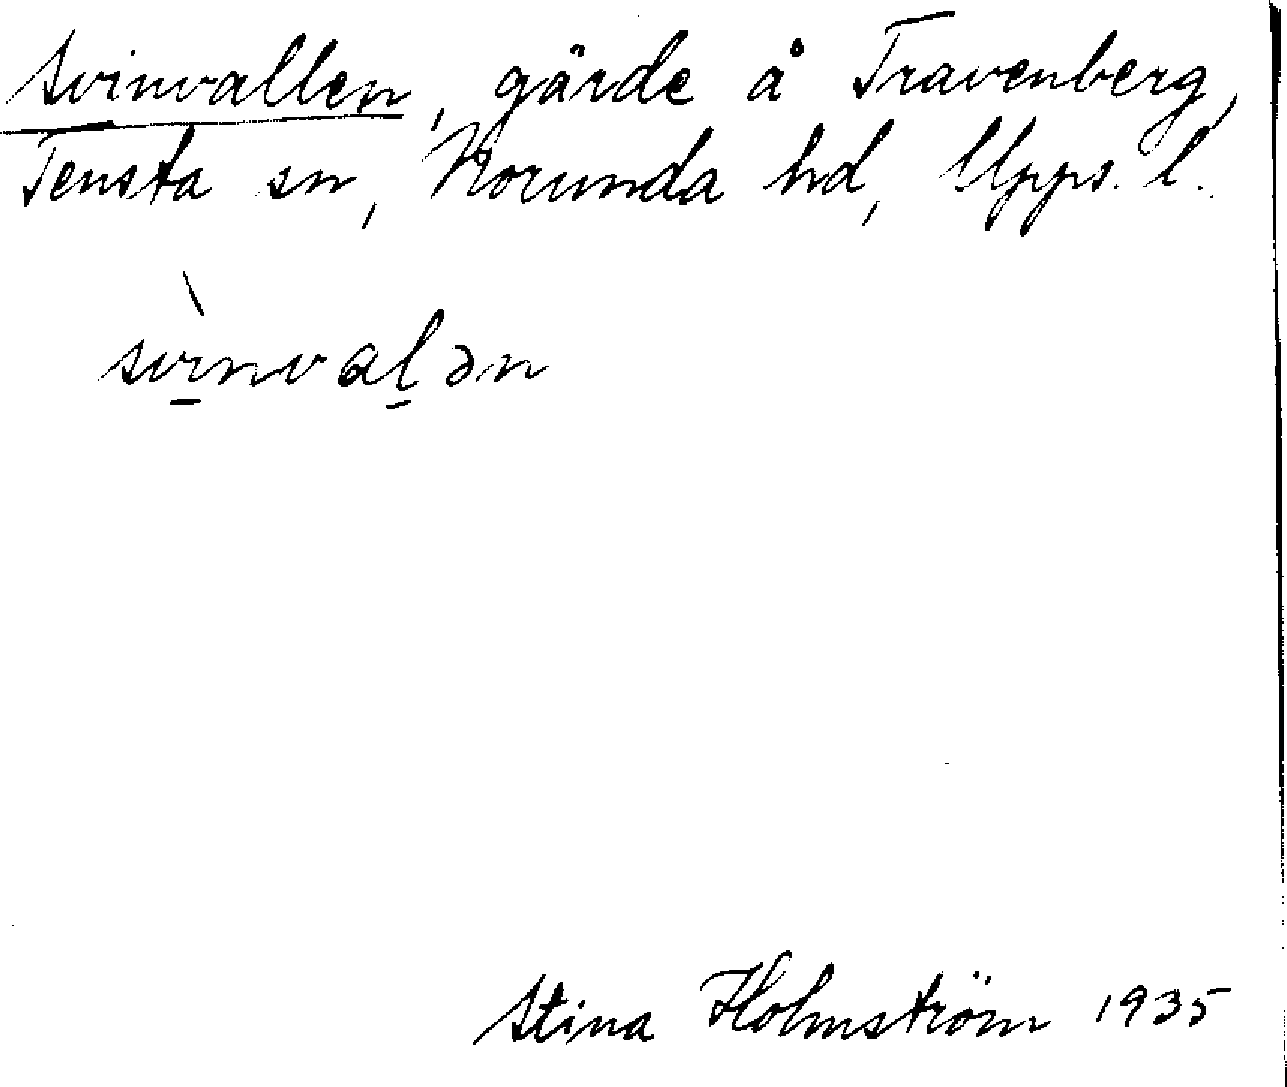 Svinvallen, gärde å Travenberg,
Tensta sn, Norunda hd, Upps. l.
svì̱nvaḻən
Stina Holmström 1935